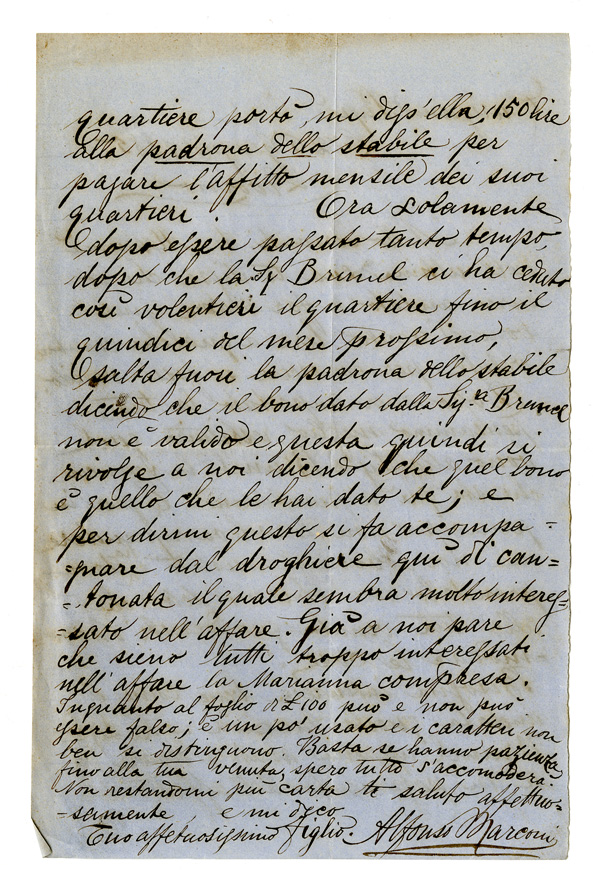 quartiere portò, mi diss'ella, 150 lire
alla padrona dello stabile per
pagare l'affitto mensile dei suoi
quartieri. Ora solamente
dopo essere passato tanto tempo,
dopo che la Sig Brunel ci ha ceduto
così volentieri il quartiere fino il
quindici del mese prossimo,
salta fuori la padrona dello stabile
dicendo che il bono dato dalla Sig.ra Brunel
non è valido e questa quindi si
rivolge a noi dicendo che quel bono
è quello che le hai dato te; e
per dirmi questo si fa accompa=
=gnare dal droghiere qui di can=
=tonata il quale sembra molto interes=
=sato nell'affare. Già a noi pare
che sieno tutti troppo interessati
nell'affare la Marianna compresa.
Inquanto al foglio di £100 può e non può
essere falso; è un po' usato e i caratteri non
ben si distinguono. Basta se hanno pazienza
fino alla tua venuta, spero tutto s'accomoderà.
Non restandomi più carta te saluto affettuo=
=samente, e mi dico
Tuo affetuosissimo figlio. Alfonso Marconi